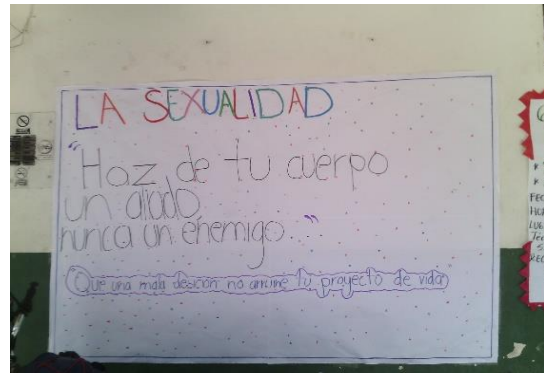 LA SEXUALIDAD
"Haz de tu cuerpo
un aliado,
nunca un enemigo."
"Que una mala desicion no arruine tu proyecto de vida"
FEC
HOR
LUG
REC